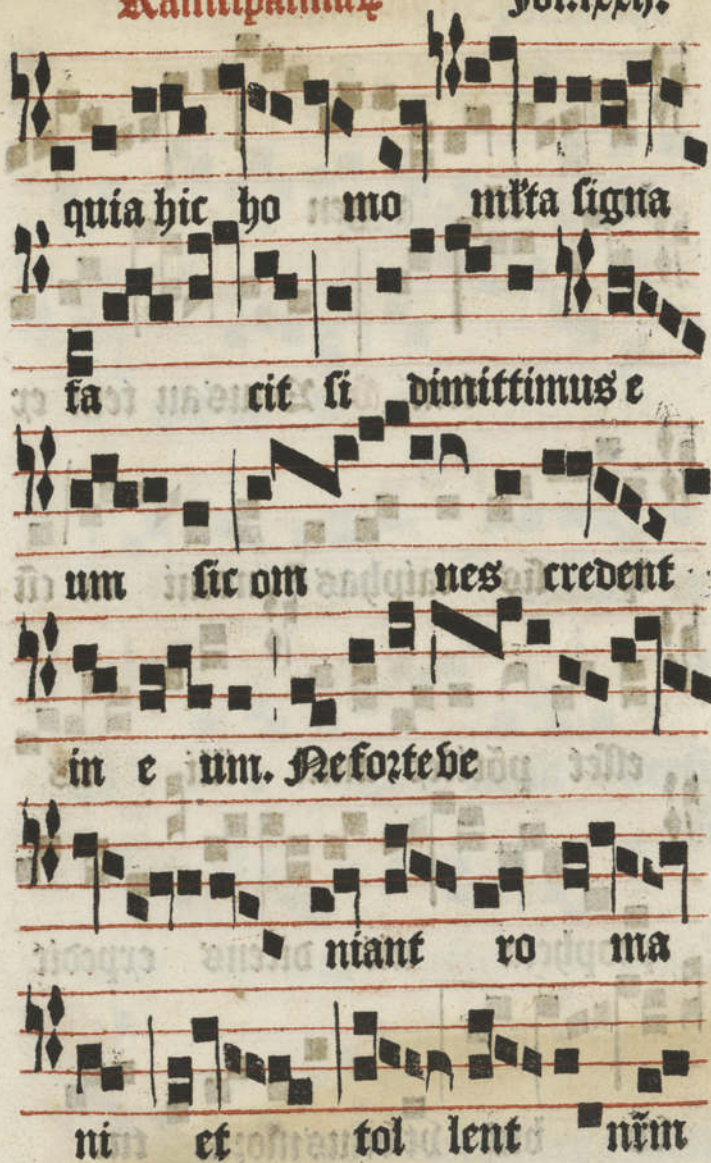 Ramispalmarum
Fol.lxxij.
quia hic ho mo mlta signa
fa cit si dimittimus e
um sic om nes credent
in e um. Ne forte ve
niant ro ma
ni et tol lent nrm